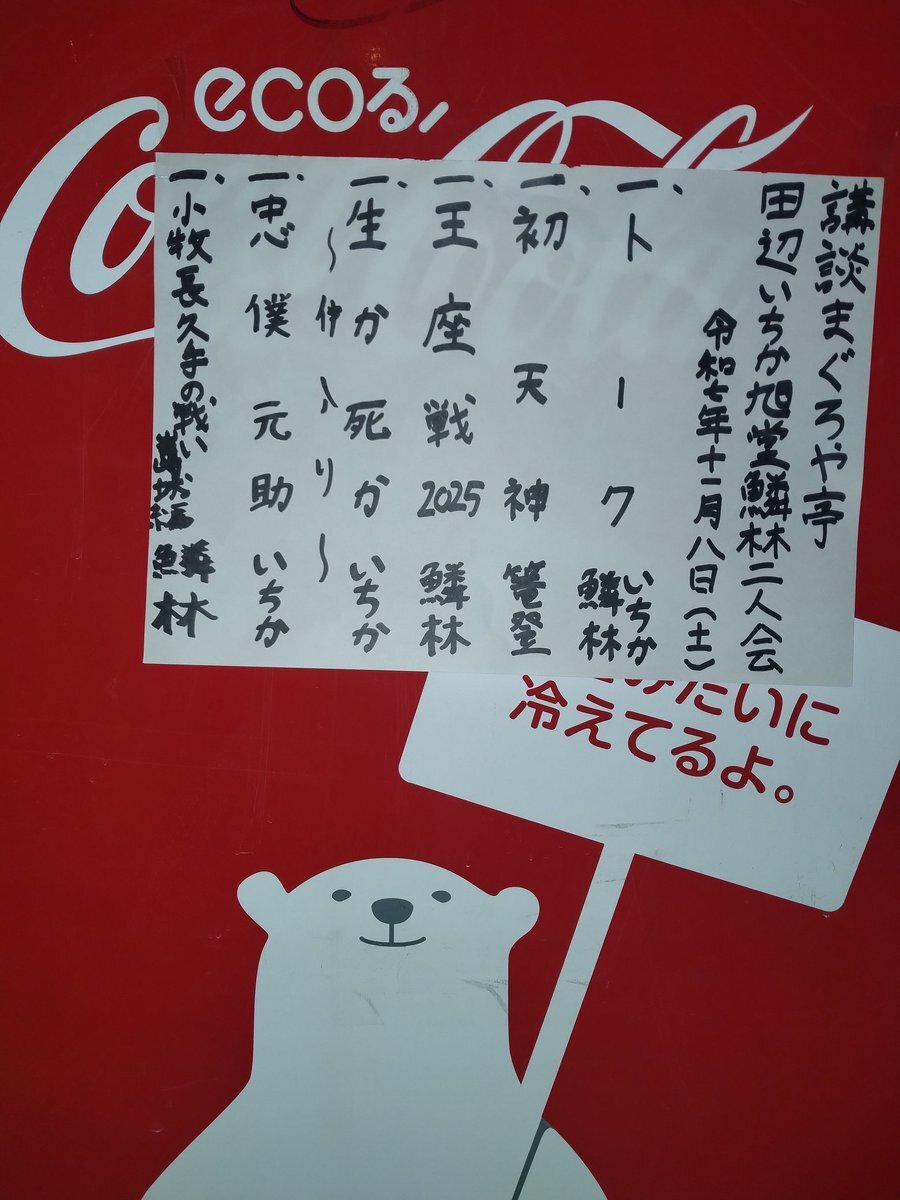 ecoる/
Co
講談まぐろや亭
田辺いちか旭堂鱗林二人会
令和七年十一月八日(土)
一、トーク いちか 鱗林
一、初天神 篭登
一、王座戦2025 鱗林
一、生か死か いちか
〜仲入り〜
一、忠僕元助 いちか
一、小牧長久手の戦い 鱗林
みたいに
冷えてるよ。